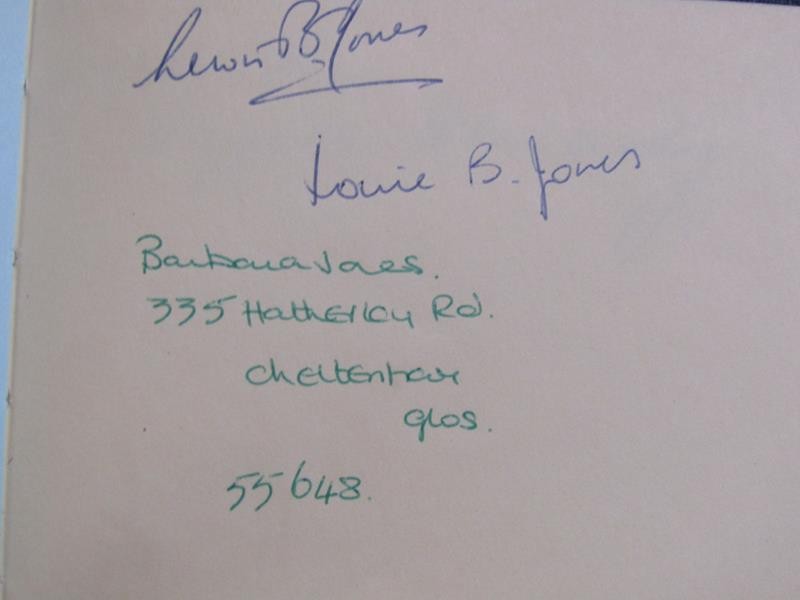 Lewis B. Jones
Louie B. Jones
Barbara Jones.
335 Hatherley Rd.
Cheltenham
Glos.
55648.